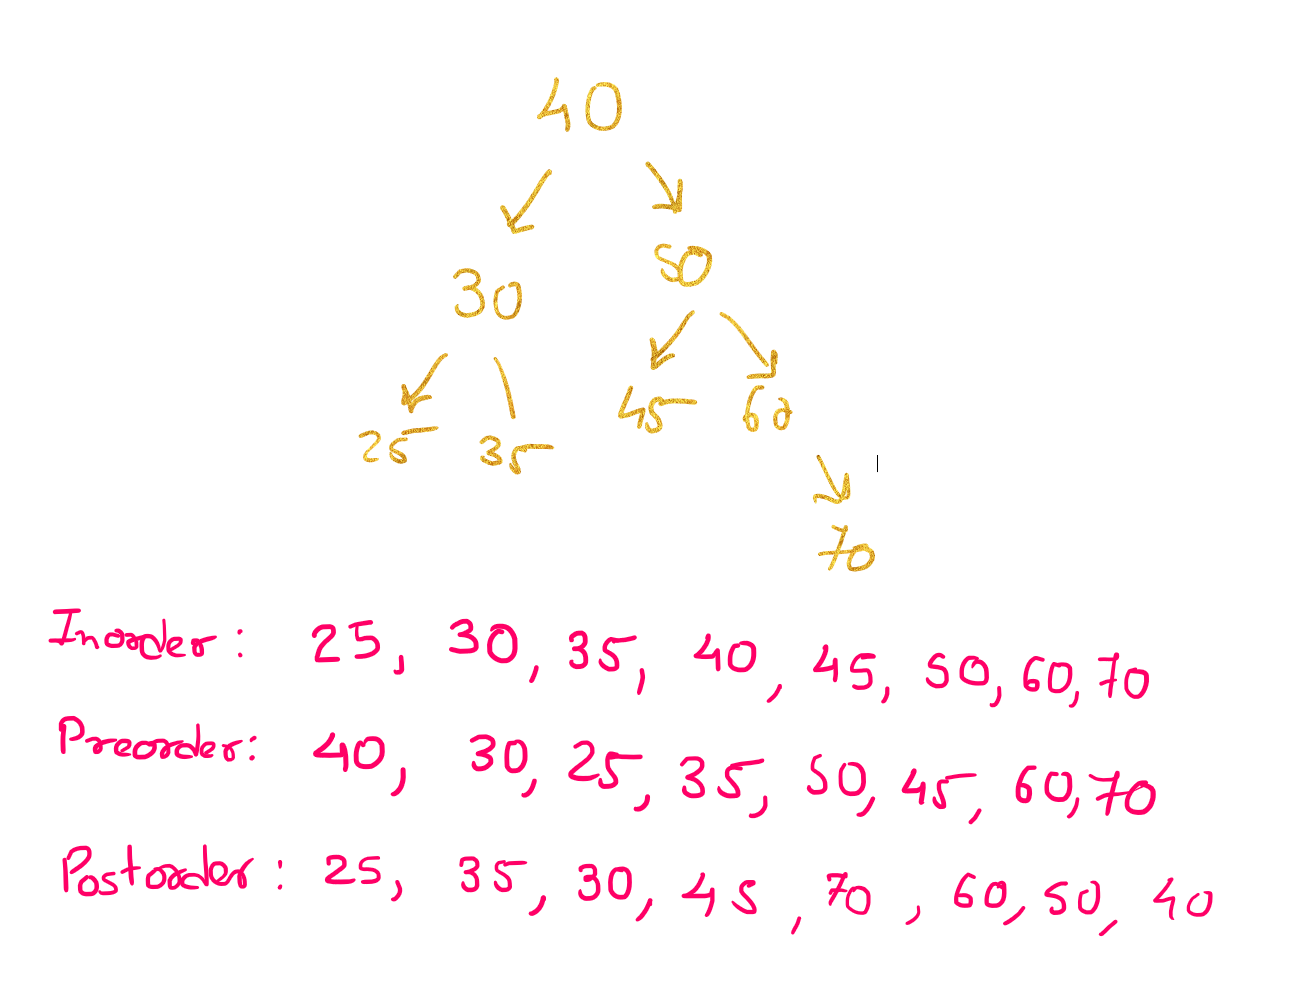 40
30 50
25 35 45 60
70
Inorder: 25, 30, 35, 40, 45, 50, 60, 70
Preorder: 40, 30, 25, 35, 50, 45, 60, 70
Postorder: 25, 35, 30, 45, 70, 60, 50, 40